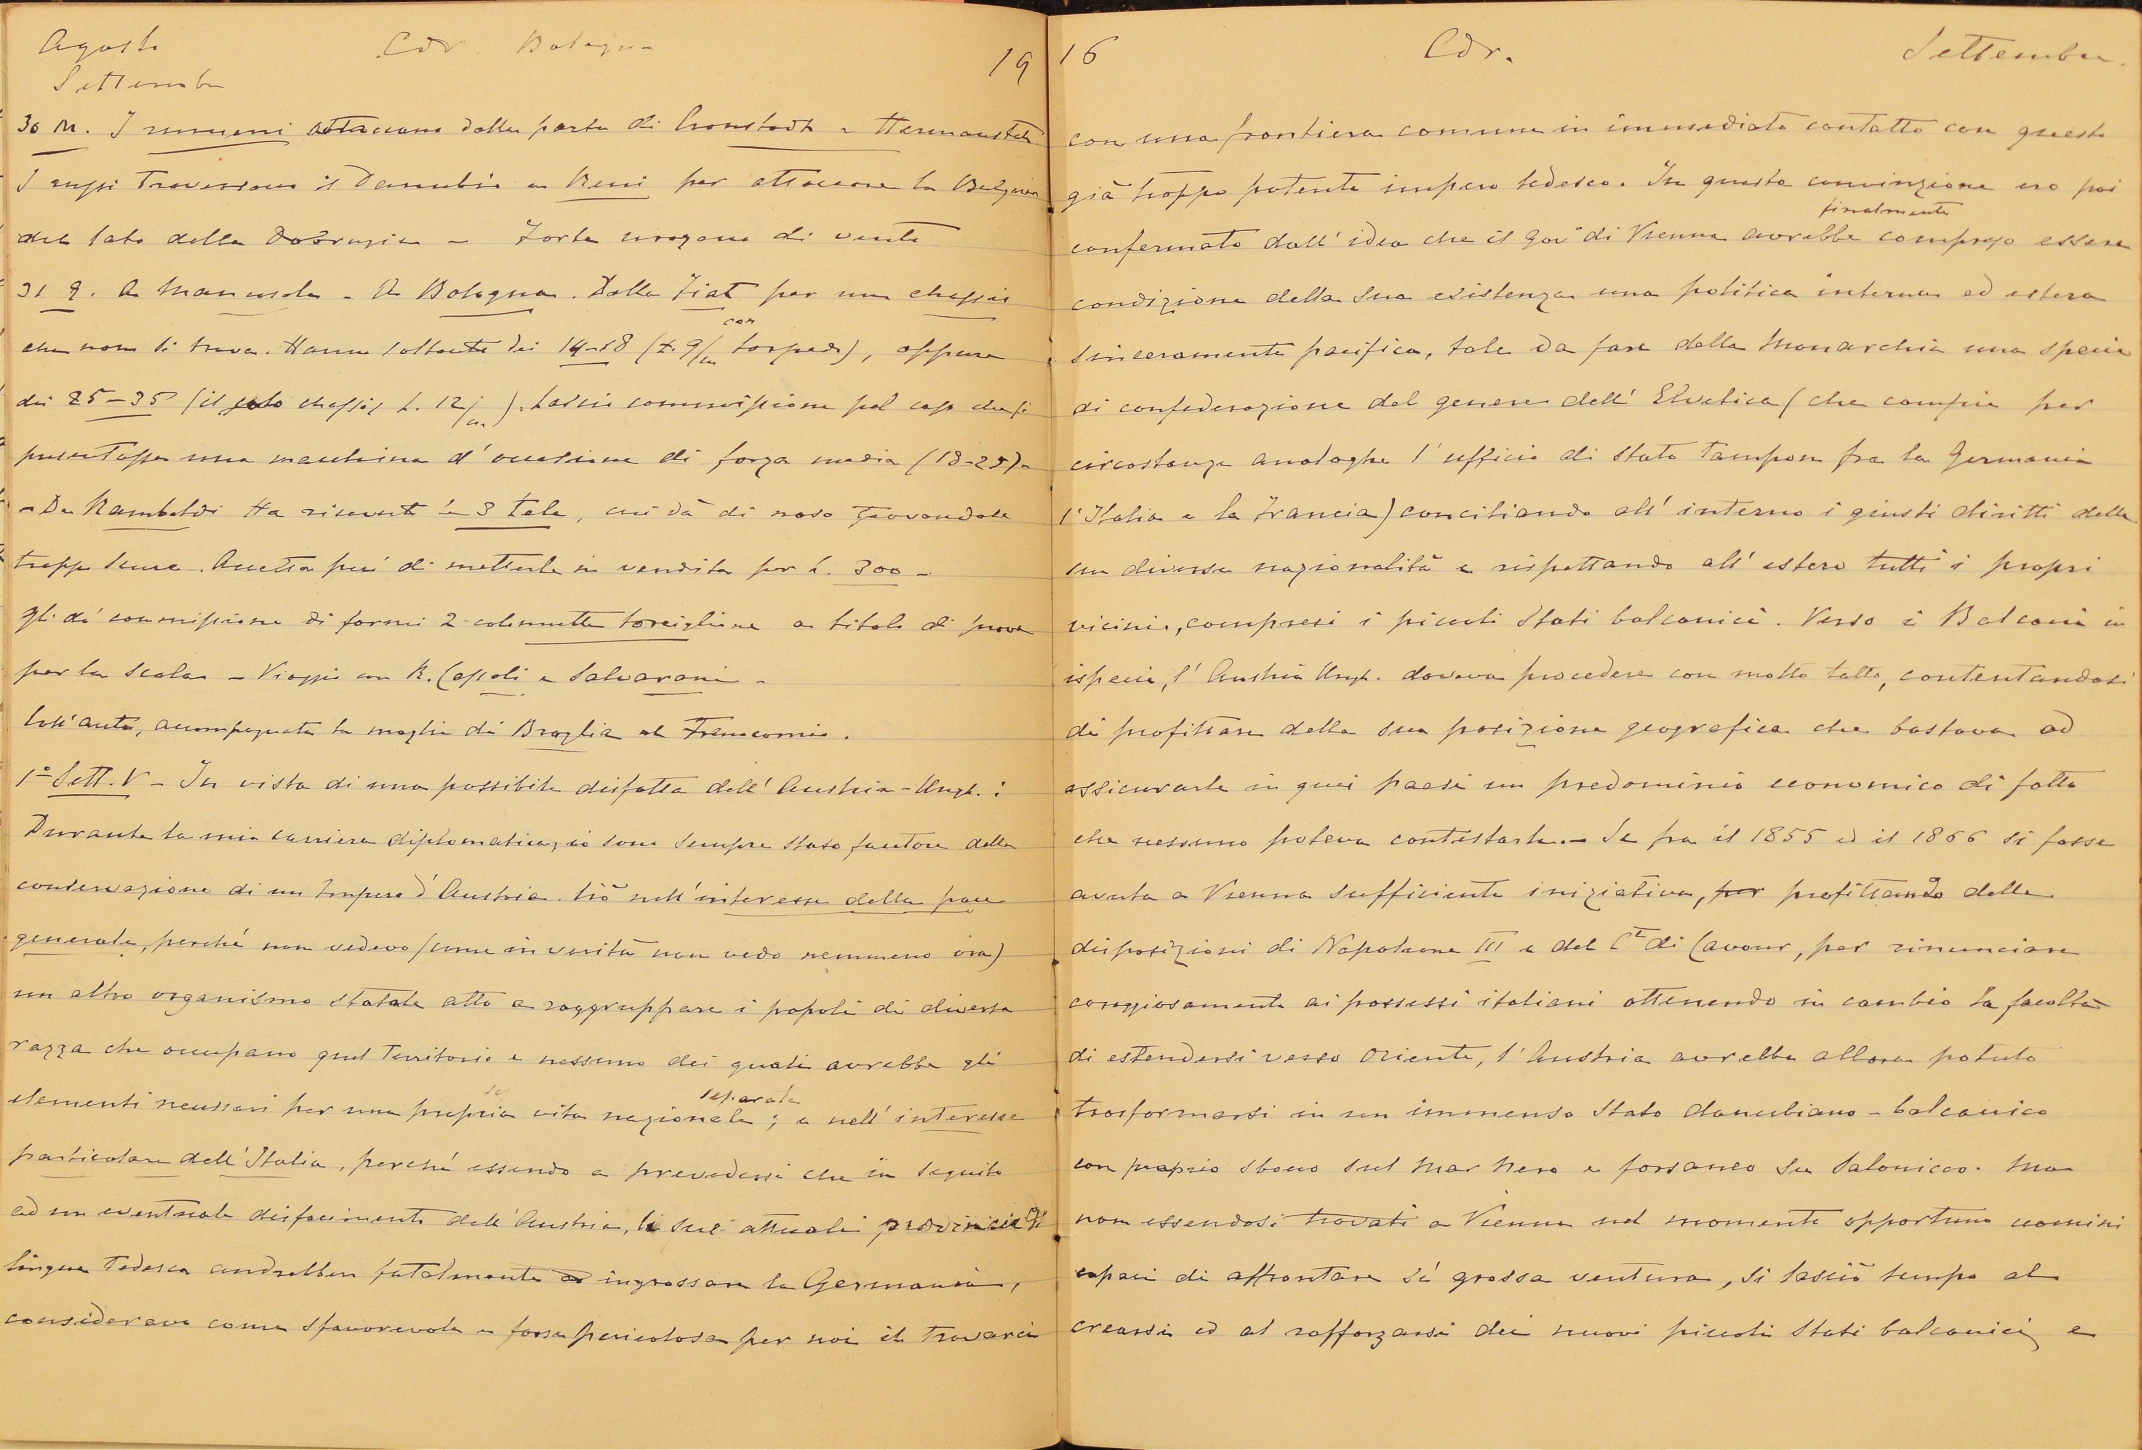 Agosto
Settembre
Cdr. Bologna
19
30 M. I rumeni attaccano dalla parte di Cronstadt e Hermanstadt
I russi traversano il Danubio a Reni per attaccare la Bulgaria
dal lato della Dobrugia - Forte uragano di vento
31 g. A Manusola - A Bologna. Dalla Fiat per un chassis
che non si trova. Hanno soltanto dei 14-18 (L. 9/m con torpedo), oppure
dei 25-35 (il solo chassis L. 12/m). Lascio commissione pel caso che si
presentasse una macchina d'occasione di forza media (18-25).
- Da Rambaldi Ha ricevuto le 3 tele, cui dà di naso trovandole
troppo scure. Accetta però di metterle in vendita per L. 300 -
Gli do commissione di farmi 2 colonnette torciglione a titolo di prova
per la scala - Viaggio con R. Cassoli e Salvarani -
Coll'auto, accompagnata la moglie di Broglia al Frenocomio.
1° Sett. V - In vista di una possibile disfatta dell'Austria-Ungh.:
Durante la mia carriera diplomatica, io sono sempre stato fautore della
conservazione di un Impero d'Austria. Ciò nell'interesse della pace
generale, perché non vedevo (come in verità non vedo nemmeno ora)
un altro organismo statale atto a raggruppare i popoli di diversa
razza che occupano quel territorio e nessuno dei quali avrebbe gli
elementi necessari per una propria vita nazionale separata; e nell'interesse
particolare dell'Italia, perché essendo a prevedersi che in seguito
ad un eventuale disfacimento dell'Austria, le sue attuali provincie di
lingua Tedesca andrebbero fatalmente ad ingrossare la Germania,
consideravo come sfavorevole e forse pericoloso per noi il trovarci
16
Cdr.
Settembre.
con una frontiera comune in immediato contatto con questo
già troppo potente impero tedesco. In questa convinzione ero poi
confermato dall'idea che il Gov° di Vienna avrebbe finalmente compreso essere
condizione della sua esistenza una politica interna ed estera
sinceramente pacifica, tale da fare della Monarchia una specie
di confederazione del genere dell'Elvetica (che compie per
circostanze analoghe l'ufficio di stato tampon fra la Germania
l'Italia e la Francia) conciliando all'interno i giusti diritti delle
sue diverse nazionalità e rispettando all'estero tutti i propri
vicini, compresi i piccoli Stati balcanici. Verso i Balcani in
ispecie, l'Austria Ungh. doveva procedere con molto tatto, contentandosi
di profittare della sua posizione geografica che bastava ad
assicurarle in quei paesi un predominio economico di fatto
che nessuno poteva contestarle. - Se fra il 1855 ed il 1866 si fosse
avuta a Vienna sufficiente iniziativa, per profittando delle
disposizioni di Napoleone III e del Cte di Cavour, per rinunciare
coraggiosamente ai possessi italiani ottenendo in cambio la facoltà
di estendersi verso Oriente, l'Austria avrebbe allora potuto
trasformarsi in un immenso Stato danubiano-balcanico
con proprio sbocco sul Mar Nero e forsanco su Salonicco. Ma
non essendosi trovati a Vienna nel momento opportuno uomini
capaci di affrontare sì grossa ventura, si lasciò tempo al
crearsi ed al rafforzarsi dei nuovi piccoli Stati balcanici, e